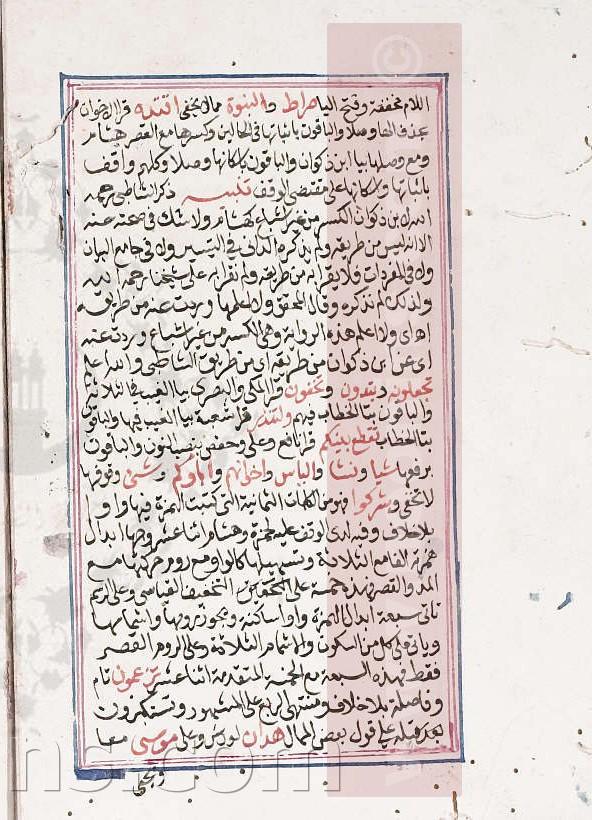 اللام مخففة وفتح اليا صراط والنبوة مما لا يخفى اقتده قرا الاخوان
بحذف الها وصلا والباقون باثباتها في الحالين وكسرها مع القصر هشام
ومع وصلها بيا ابن ذكوان والباقون باسكانها وصلا وكلهم واقف
باثباتها واسكانها على مقتضى الوقف تكبسه ذكر الشاطبي رحمه
الله لابن ذكوان الكسر من غير اشباع كهشام ولا شك في صحته عنه
الا انه ليس من طريقه ولم يذكره الداني في التيسير ولا في جامع البيان
ولا في المفردات فلا نقرا به من طريقه ولم نقرا به على شيخنا رحمه الله
ولذلك لم نذكره وقال المحقق ولا اعلمها وردت عنه من طريقه
اه اي ولا اعلم هذه الرواية وهي الكسر من غير اشباع وردت عنه
اي عن ابن ذكوان من طريقه اي من طريق الشاطبي والله اعلم
تجعلونه وتبدون وتخفون قرا المكي والبصري بيا الغيب في الثلاثة
والباقون بتا الخطاب فيهم ولتنذر قرا شعبة بيا الغيب فيها والباقون
بتا الخطاب تقطع بينكم قرا نافع وعلي وحفص بنصب النون والباقون
برفعها شيا ونشا والباس واخوانهم واباؤكم وشى وقوفها
لا تخفى وشركوا فهو من الكلمات الثمانية التي كتبت الهمزة فيها واوا
بلا خلاف وفيه لدى الوقف عليه لحمزة وهشام اثنا عشر وجها ابدال
همزته الفا مع الثلاثة وتسهيلها كالواو مع روم حركتها مع
المد والقصر فهذه خمسة على التخفيف القياسي وعلى الرسم
تاتي سبعة ابدال الهمزة واوا ساكنة ويجوز رومها واشمامها
وياتي على كل من السكون والاشمام الثلاثة وعلى الروم القصر
فقط فهذه السبعة مع الخمسة المتقدمة اثنا عشر تزعمون تام
وفاصلة بلا خلاف ومنتهى الربع على المشهور وتستكبرون
قبله على قول بعض الممال هدان لورش وعلي موسى معا
ويحيى